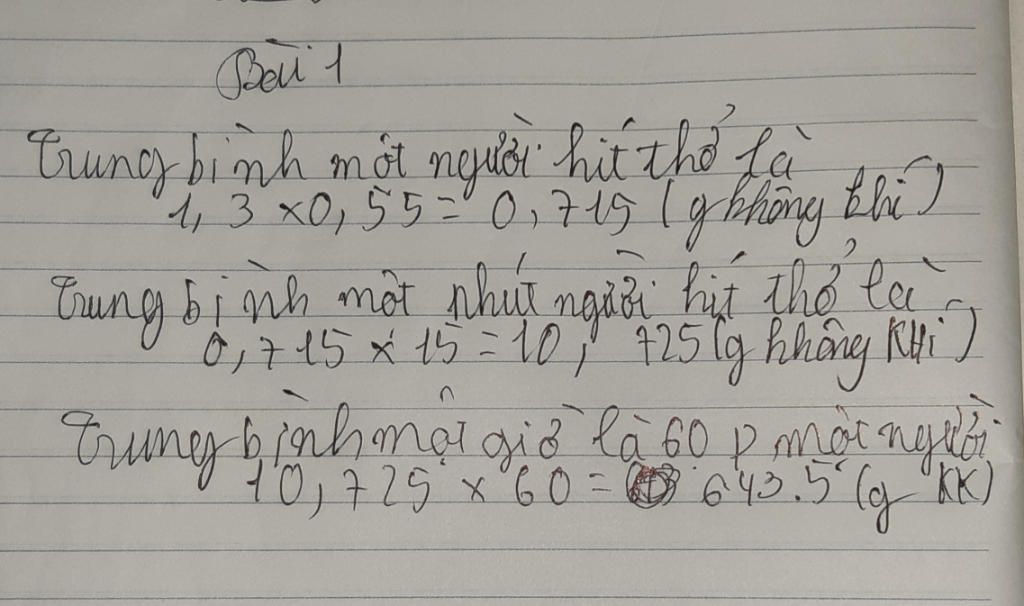 Bài 1
Trung bình một người hít thở là
1,3 × 0,55 = 0,715 (g không khí)
Trung bình một phút người hít thở là
0,715 × 15 = 10,725 (g không KHí)
Trung bình một giờ là 60 p một người
10,725 × 60 = 643.5 (g KK)